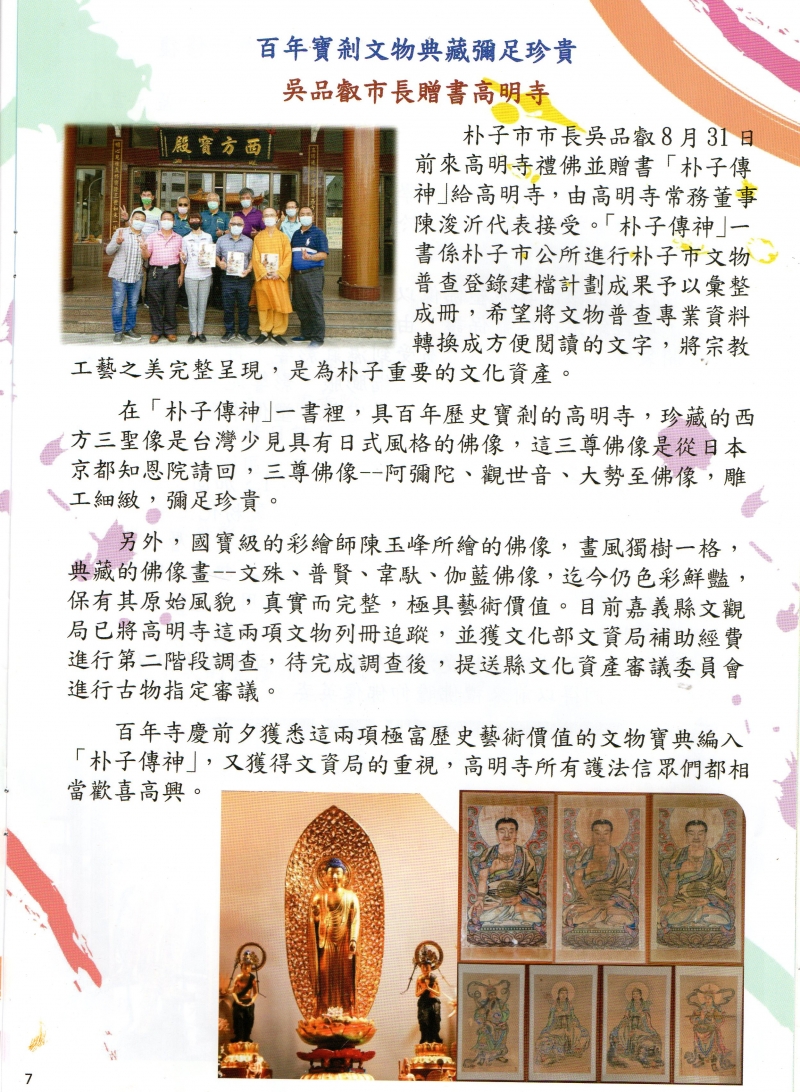 百年寶剎文物典藏彌足珍貴
吳品叡市長贈書高明寺
西方寶殿
朴子市市長吳品叡8月31日
前來高明寺禮佛並贈書「朴子傳
神」給高明寺，由高明寺常務董事
陳浚沂代表接受。「朴子傳神」一
書係朴子市公所進行朴子市文物
普查登錄建檔計劃成果予以彙整
成冊，希望將文物普查專業資料
轉換成方便閱讀的文字，將宗教
工藝之美完整呈現，是為朴子重要的文化資產。
在「朴子傳神」一書裡，具百年歷史寶剎的高明寺，珍藏的西
方三聖像是台灣少見具有日式風格的佛像，這三尊佛像是從日本
京都知恩院請回，三尊佛像--阿彌陀、觀世音、大勢至佛像，雕
工細緻，彌足珍貴。
另外，國寶級的彩繪師陳玉峰所繪的佛像，畫風獨樹一格，
典藏的佛像畫--文殊、普賢、韋馱、伽藍佛像，迄今仍色彩鮮豔，
保有其原始風貌，真實而完整，極具藝術價值。目前嘉義縣文觀
局已將高明寺這兩項文物列冊追蹤，並獲文化部文資局補助經費
進行第二階段調查，待完成調查後，提送縣文化資產審議委員會
進行古物指定審議。
百年寺慶前夕獲悉這兩項極富歷史藝術價值的文物寶典編入
「朴子傳神」，又獲得文資局的重視，高明寺所有護法信眾們都相
當歡喜高興。
7